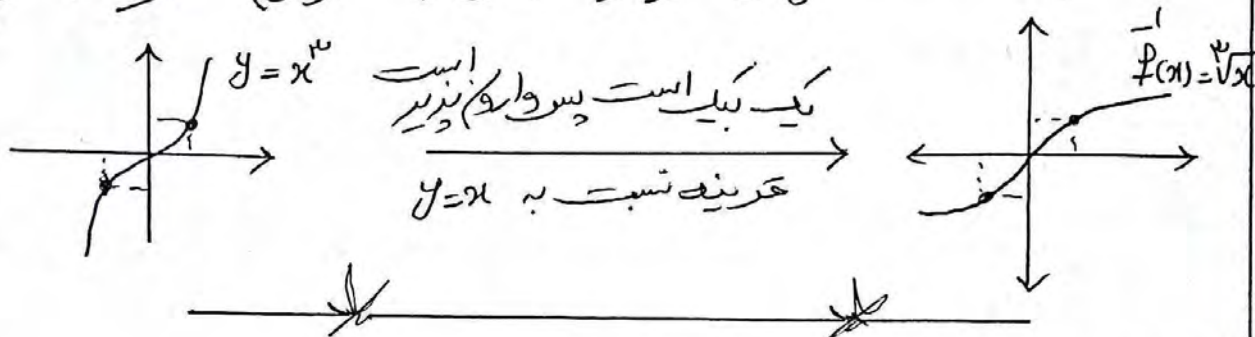 y = x³
یک بیک است پس وارون پذیر است
قرینه نسبت به y=x
f⁻¹(x) = ∛x
۱
۱